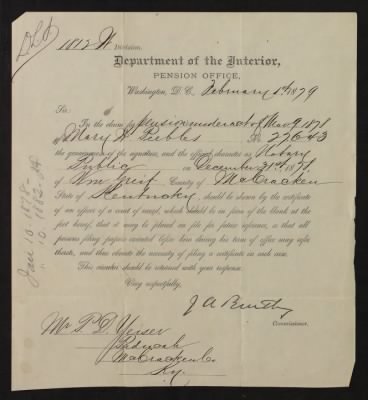 1812 W Division.
Department of the Interior,
PENSION OFFICE,
Washington, D. C., February 1st 1879
Sir:
In the claim by Pension under act of Mar 9 1878
of Mary W. Peebles No 27643
the genuineness of signature, and the official character as Notary
Public on December 31st 1878.
of Wm Greif County of McCracken
State of Kentucky, should be shown by the certificate
an officer of a court of record, which should be in form of the blank at the
foot hereof, that it may be placed on file for future reference, so that all
persons filing papers executed before him during his term of office may refer
thereto, and thus obviate the necessity of filing a certificate in each case.
This circular should be returned with your response.
Very respectfully,
J A Bentley
Commissioner.
Mr P. D. Yeiser
Paducah
McCracken Co
Ky.
Jan 13. 1878
" 10. 1882